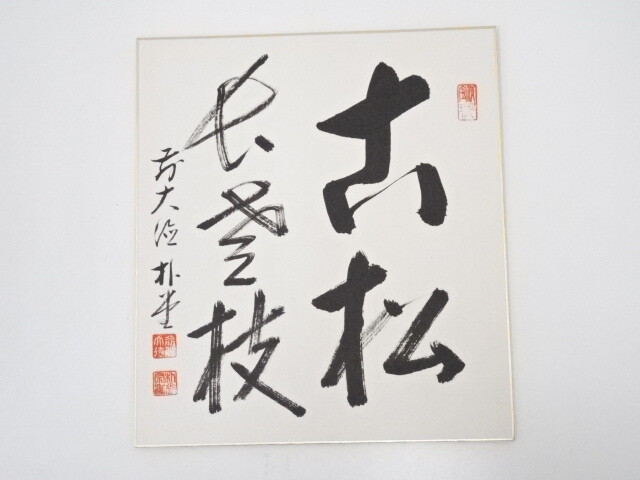 古松
長老枝
前大徳 朴堂